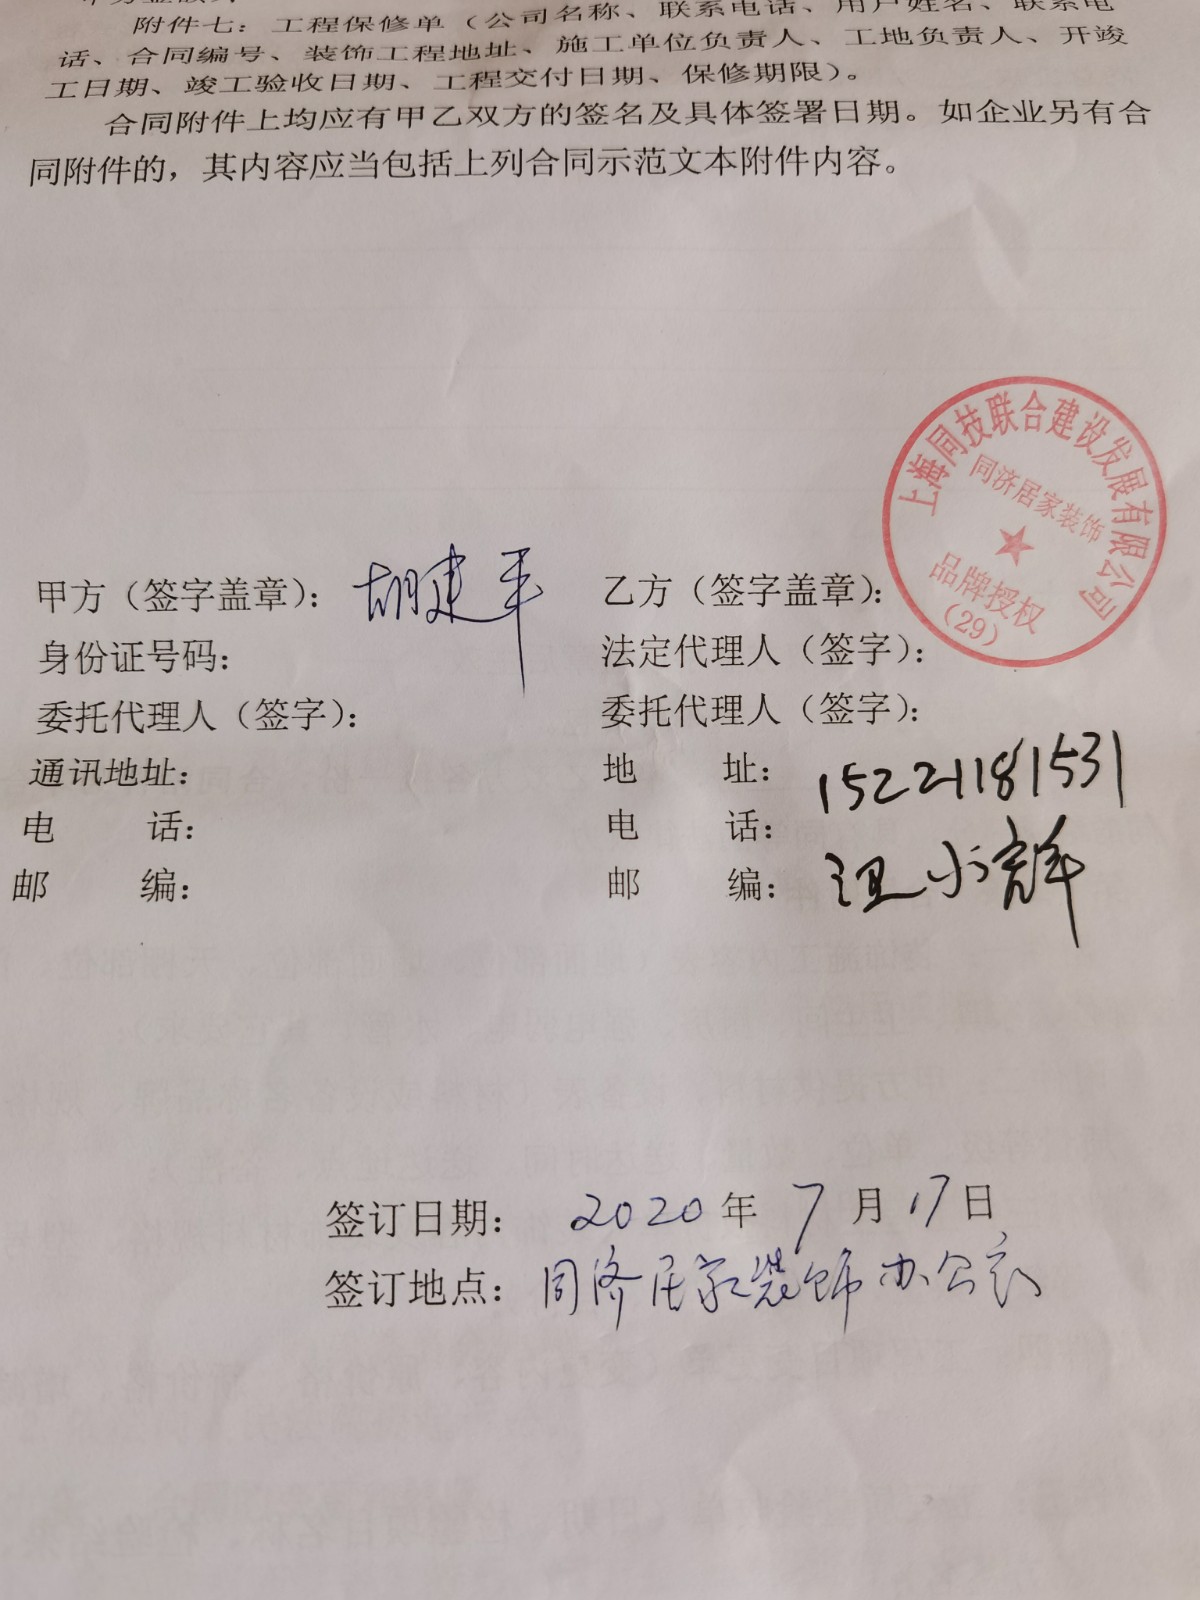 附件七：工程保修单（公司名称、联系电话、用户姓名、联系电
话、合同编号、装饰工程地址、施工单位负责人、工地负责人、开竣
工日期、竣工验收日期、工程交付日期、保修期限）。
合同附件上均应有甲乙双方的签名及具体签署日期。如企业另有合
同附件的，其内容应当包括上列合同示范文本附件内容。
上海同技联合建设发展有限公司
同济居家装饰
品牌授权
（29）
甲方（签字盖章）：胡建平
乙方（签字盖章）：
身份证号码：
法定代理人（签字）：
委托代理人（签字）：
委托代理人（签字）：
通讯地址：
地 址：15221181531
电 话：
电 话：
邮 编：
邮 编：
签订日期： 2020年 7月17日
签订地点：同济居家装饰办公室